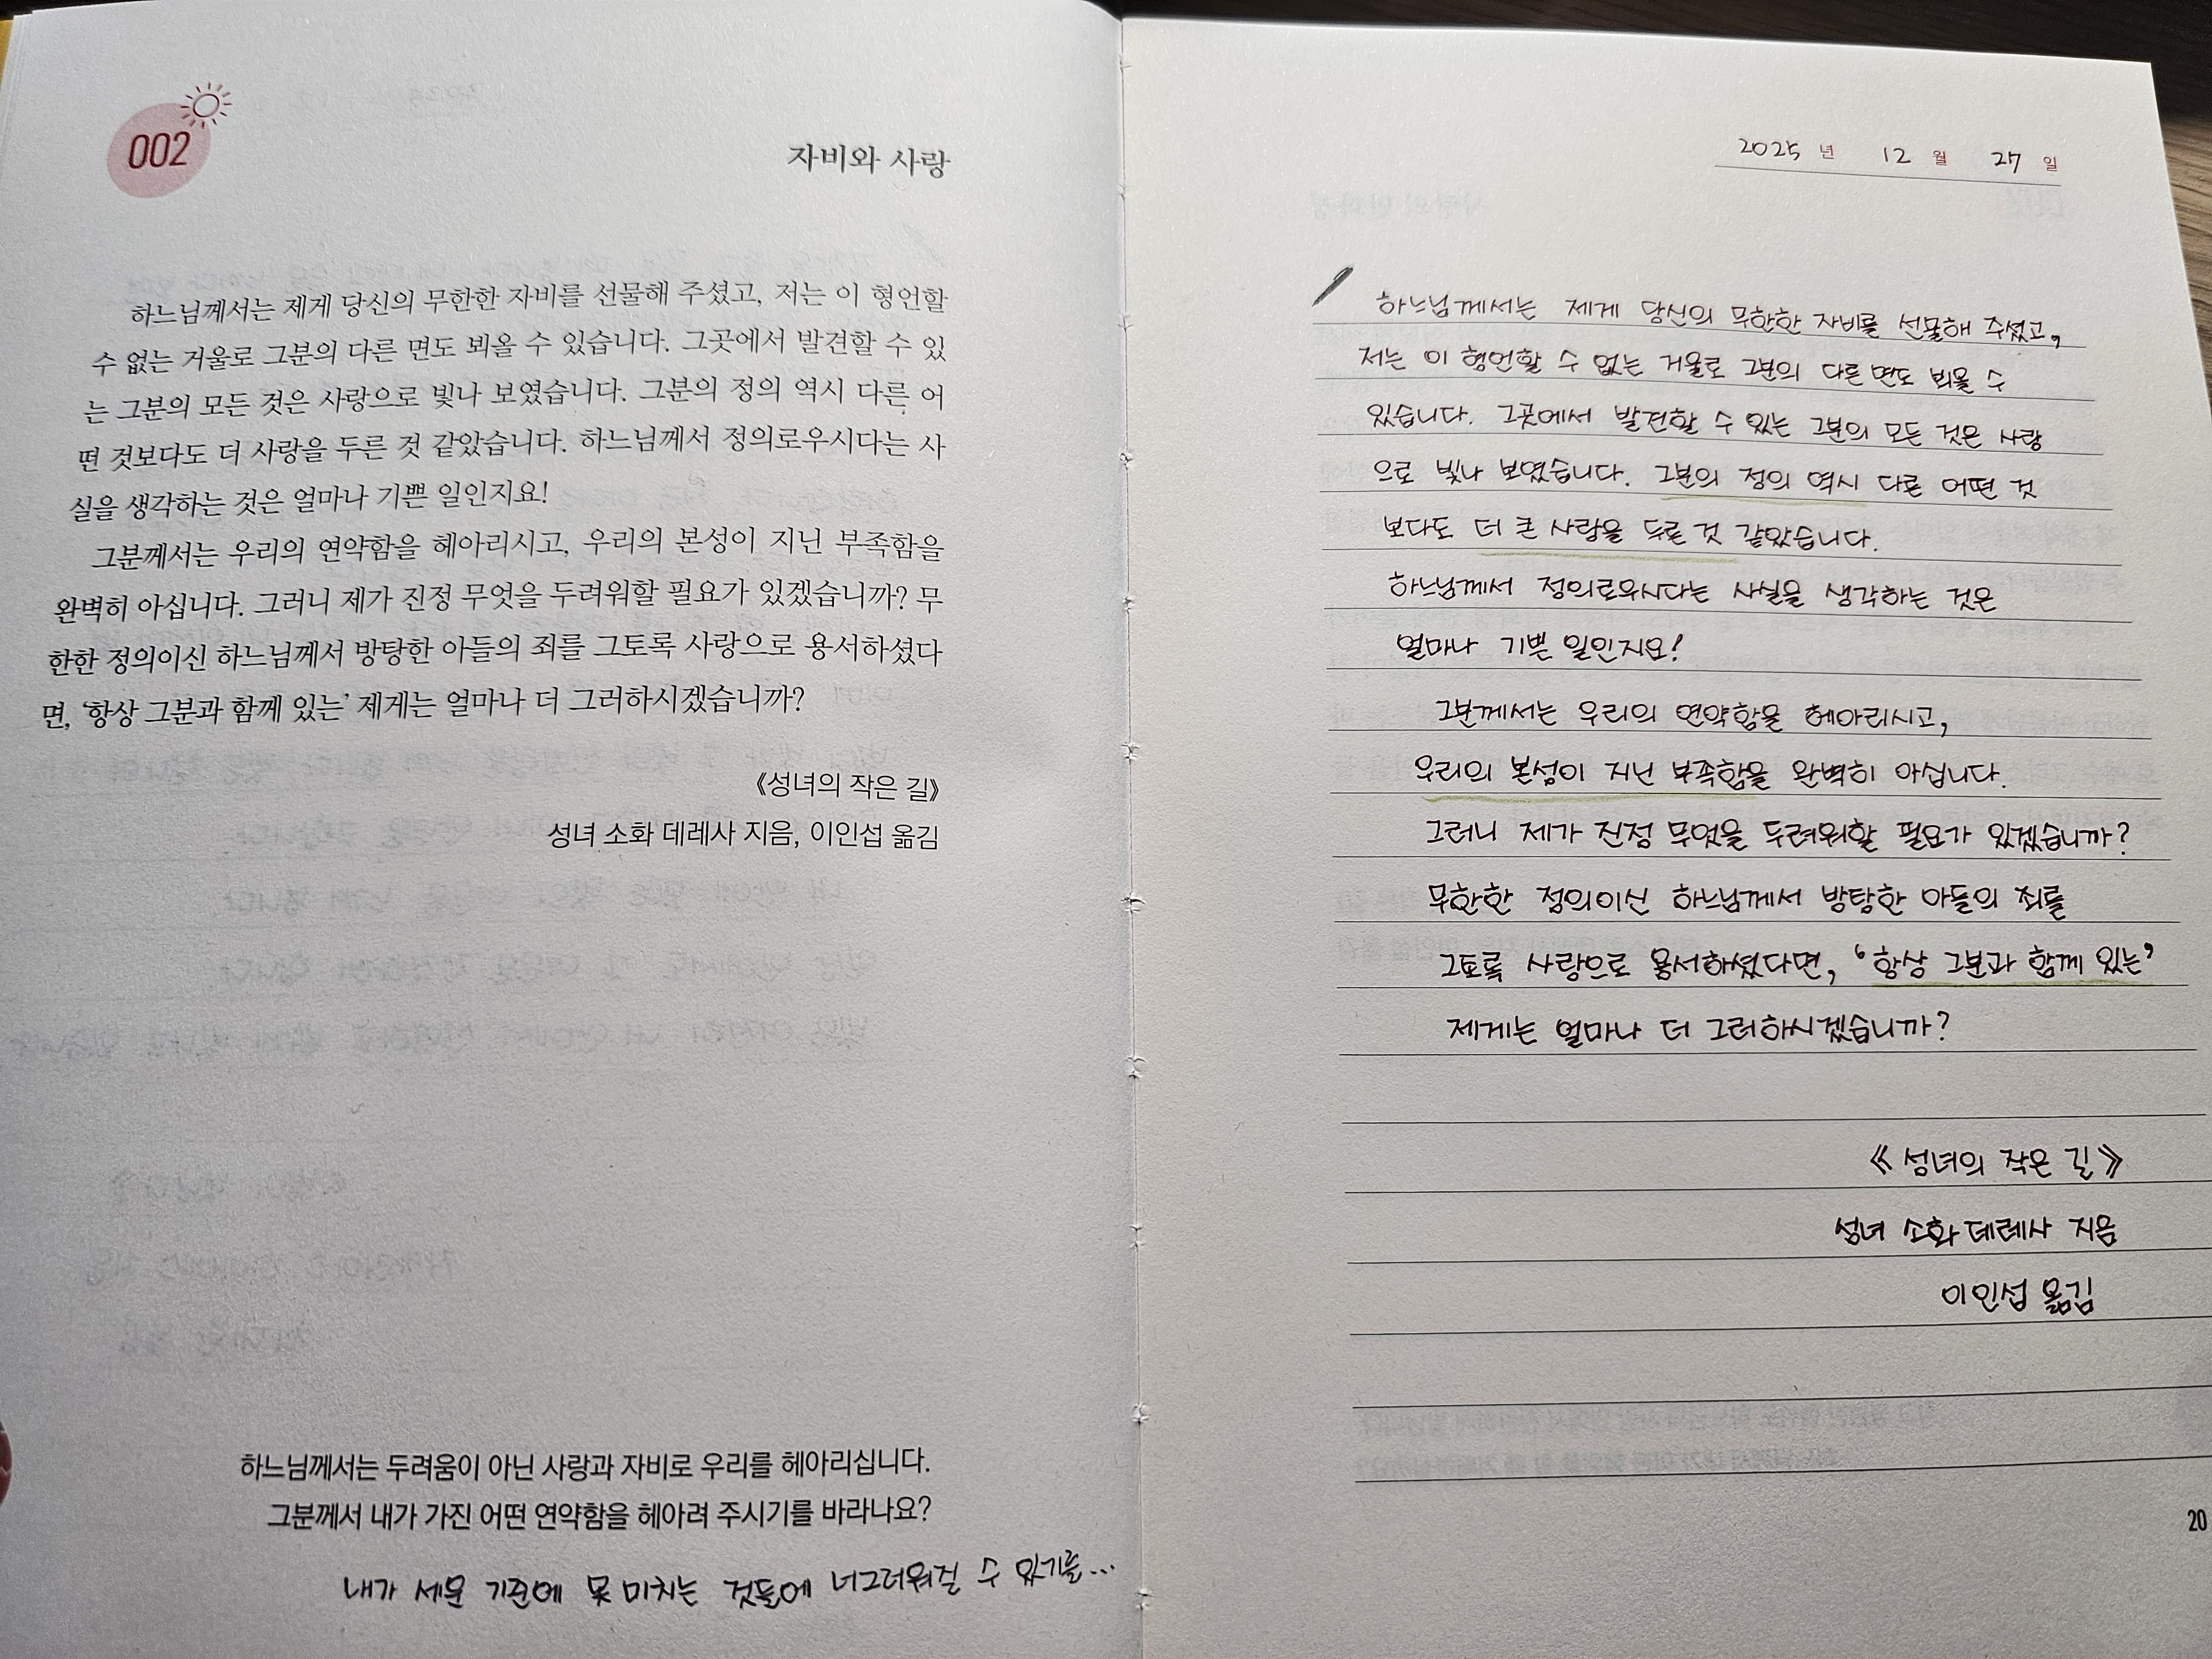 002
자비와 사랑
하느님께서는 제게 당신의 무한한 자비를 선물해 주셨고, 저는 이 형언할
수 없는 거울로 그분의 다른 면도 뵈올 수 있습니다. 그곳에서 발견할 수 있
는 그분의 모든 것은 사랑으로 빛나 보였습니다. 그분의 정의 역시 다른 어
떤 것보다도 더 사랑을 두른 것 같았습니다. 하느님께서 정의로우시다는 사
실을 생각하는 것은 얼마나 기쁜 일인지요!
그분께서는 우리의 연약함을 헤아리시고, 우리의 본성이 지닌 부족함을
완벽히 아십니다. 그러니 제가 진정 무엇을 두려워할 필요가 있겠습니까? 무
한한 정의이신 하느님께서 방탕한 아들의 죄를 그토록 사랑으로 용서하셨다
면, ‘항상 그분과 함께 있는’ 제게는 얼마나 더 그러하시겠습니까?
《성녀의 작은 길》
성녀 소화 데레사 지음, 이인섭 옮김
하느님께서는 두려움이 아닌 사랑과 자비로 우리를 헤아리십니다.
그분께서 내가 가진 어떤 연약함을 헤아려 주시기를 바라나요?
내가 세운 기준에 못 미치는 것들에 너그러워질 수 있기를...
2025 년 12 월 27 일
하느님께서는 제게 당신의 무한한 자비를 선물해 주셨고,
저는 이 형언할 수 없는 거울로 그분의 다른 면도 뵈올 수
있습니다. 그곳에서 발견할 수 있는 그분의 모든 것은 사랑
으로 빛나 보였습니다. 그분의 정의 역시 다른 어떤 것
보다도 더 큰 사랑을 두른 것 같았습니다.
하느님께서 정의로우시다는 사실을 생각하는 것은
얼마나 기쁜 일인지요!
그분께서는 우리의 연약함을 헤아리시고,
우리의 본성이 지닌 부족함을 완벽히 아십니다.
그러니 제가 진정 무엇을 두려워할 필요가 있겠습니까?
무한한 정의이신 하느님께서 방탕한 아들의 죄를
그토록 사랑으로 용서하셨다면, ‘항상 그분과 함께 있는’
제게는 얼마나 더 그러하시겠습니까?
《성녀의 작은 길》
성녀 소화 데레사 지음
이인섭 옮김
20